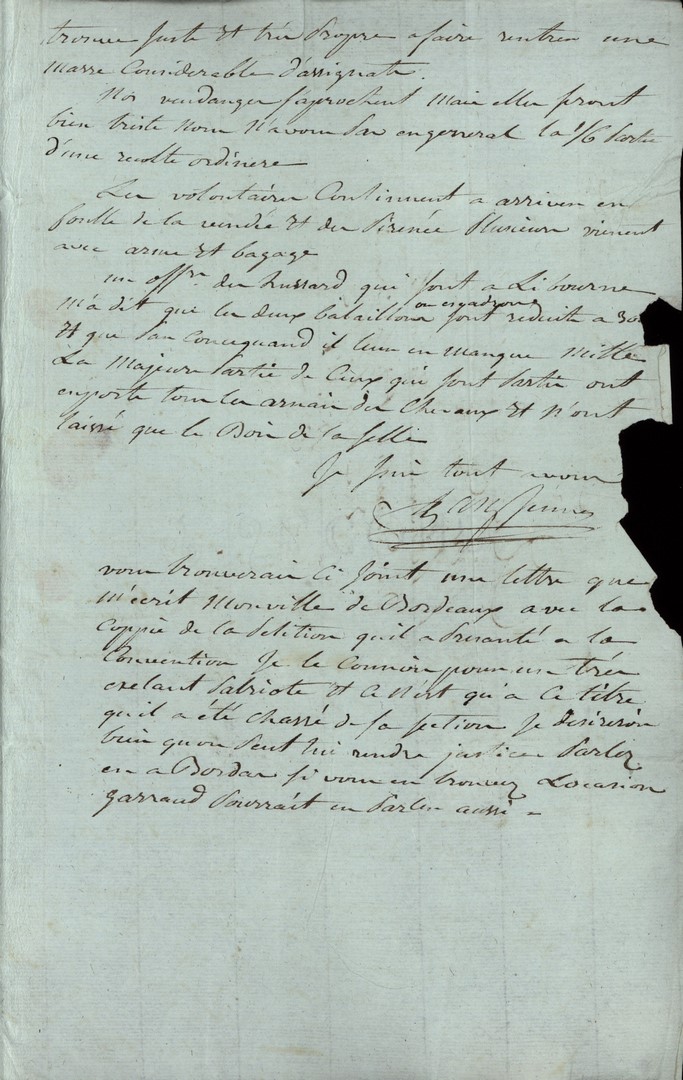 trouve juste et trés propre a faire rentrer une
masse Considerable d'assignats.
Nos vendanges saprochent mais elles seront
bien triste nous n'avons pas en general la 1/6 partie
d'une recolte ordinere
Les volontaires Continuent a arriver en
foulle de la vendée et des Pirenée plusieurs vienent
avec arme et bagage
un offer du hussard qui sont a Libourne
m'a dit que les deux bataillons ou esgadrons sont reduits a 30
et que par concequand il leur en manque mille
La majeure partie de Ceux qui sont partis ont
emporté tous les arnais des Chevaux et n'ont
laissé que le Bois de la selle
Je suis tout a vous
vous trouverais Ci joint, une lettre que
m'ecrit Monville de Bordeaux avec la
Coppie de la Petition qu'il a presanté a la
Convention Je le Connois pour un trés
exelant patriote et Ce n'est qu'a Ce titre
qu'il a été chassé de sa section Je desirerois
bien quon peut lui rendre justice parlez
en a Bordas si vous en trouvez Locasion
garraud pourrait en parler aussi -